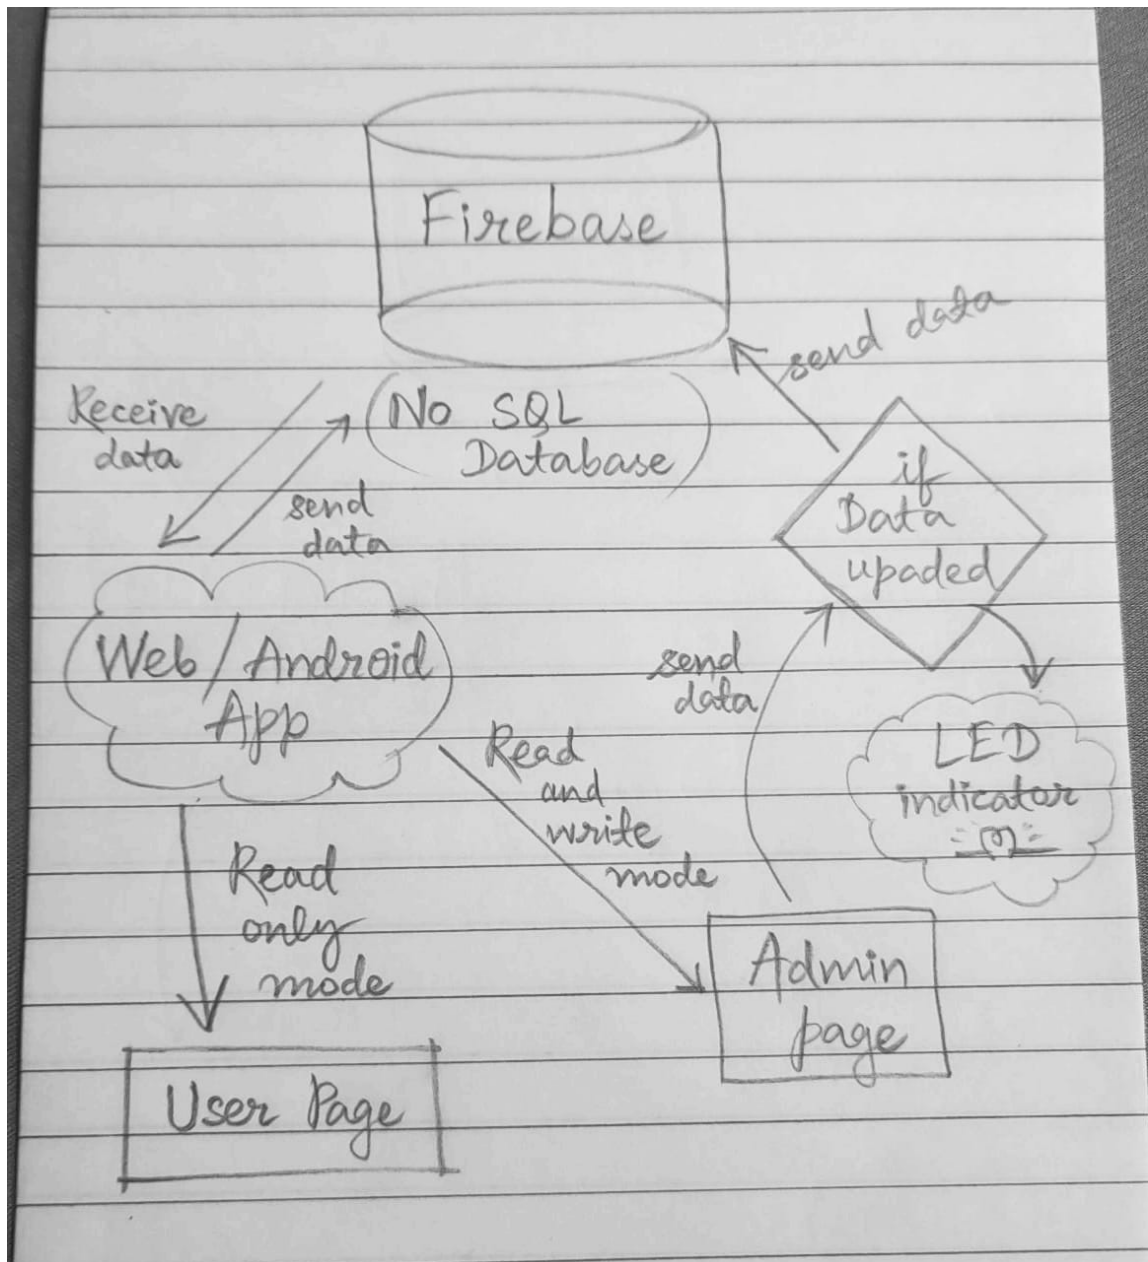 Firebase
send data
(No SQL
Database)
Receive
data
send
data
if
Data
upaded
Web/Android
App
send
data
LED
indicator
Read
and
write
mode
Read
only
mode
Admin
page
User Page